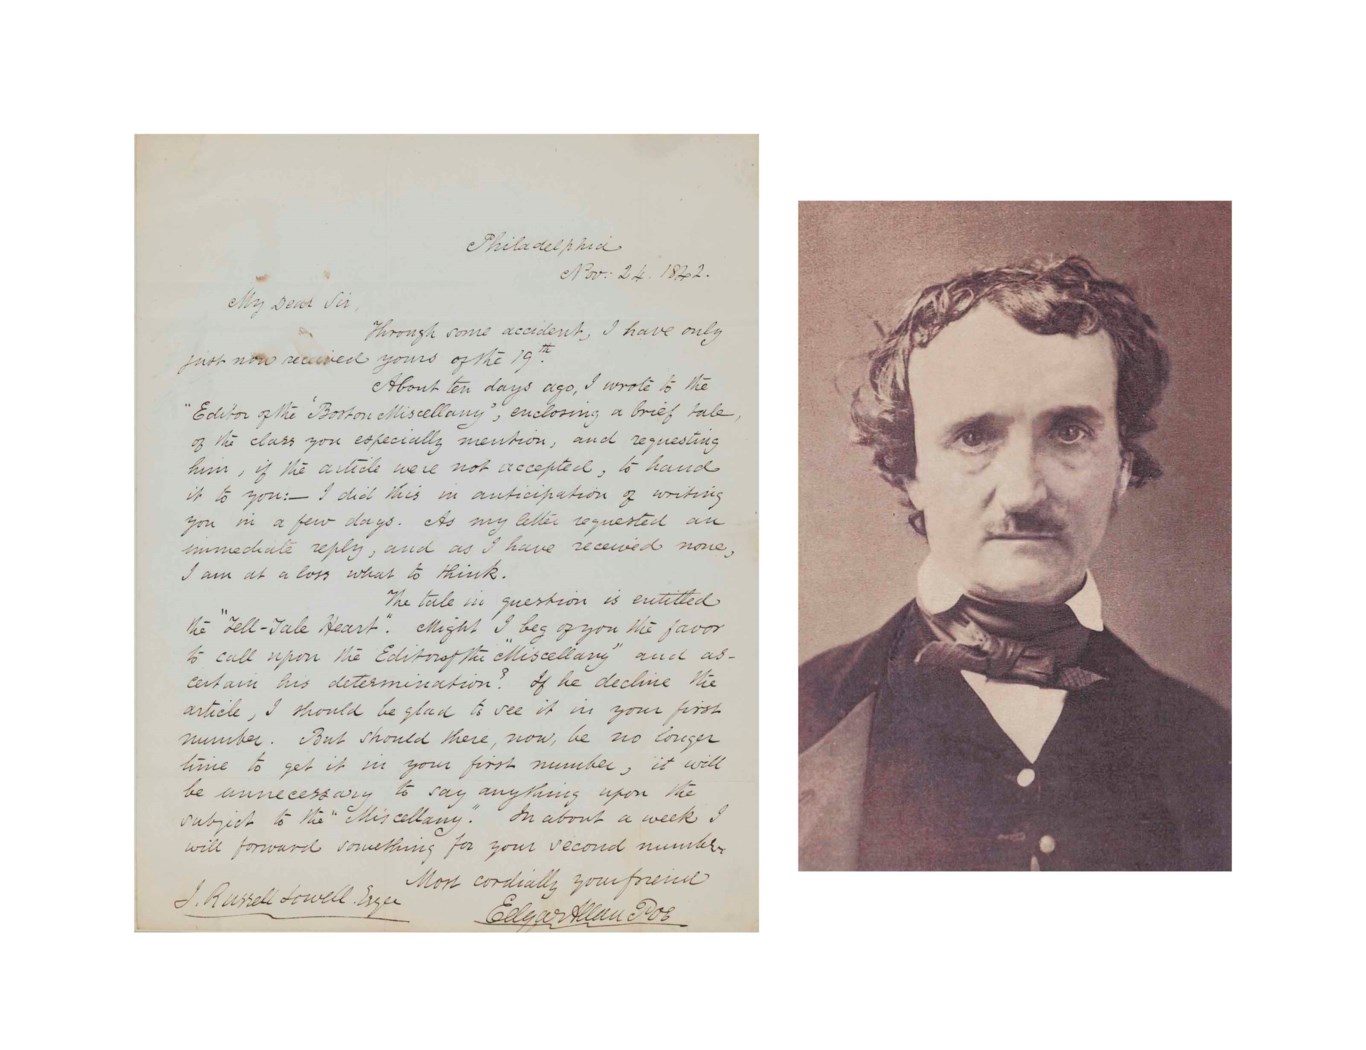 Philadelphia
Nov. 24. 1842.
My Dear Sir,
Through some accident, I have only
just now received yours of the 19th.
About ten days ago, I wrote to the
"Editor of the 'Boston Miscellany', enclosing a brief tale,
of the class you especially mention, and requesting
him, if the article were not accepted, to hand
it to you:— I did this in anticipation of writing
you in a few days. As my letter requested an
immediate reply, and as I have received none,
I am at a loss what to think.
The tale in question is entitled
the "Tell-Tale Heart". Might I beg of you the favor
to call upon the Editor of the "Miscellany" and as-
certain his determination? If he decline the
article, I should be glad to see it in your first
number. But should there, now, be no longer
time to get it in your first number, it will
be unnecessary to say anything upon the
subject to the "Miscellany." In about a week I
will forward something for your second number.
Most cordially your friend
J. Russell Lowell Esqre
Edgar Allan Poe